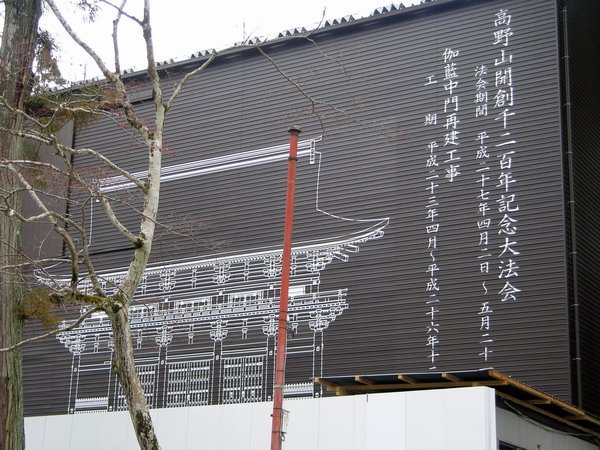 高野山開創千二百年記念大法会
法会期間 平成二十七年四月二日～五月二十
伽藍中門再建工事
工期 平成二十三年四月～平成二十六年十